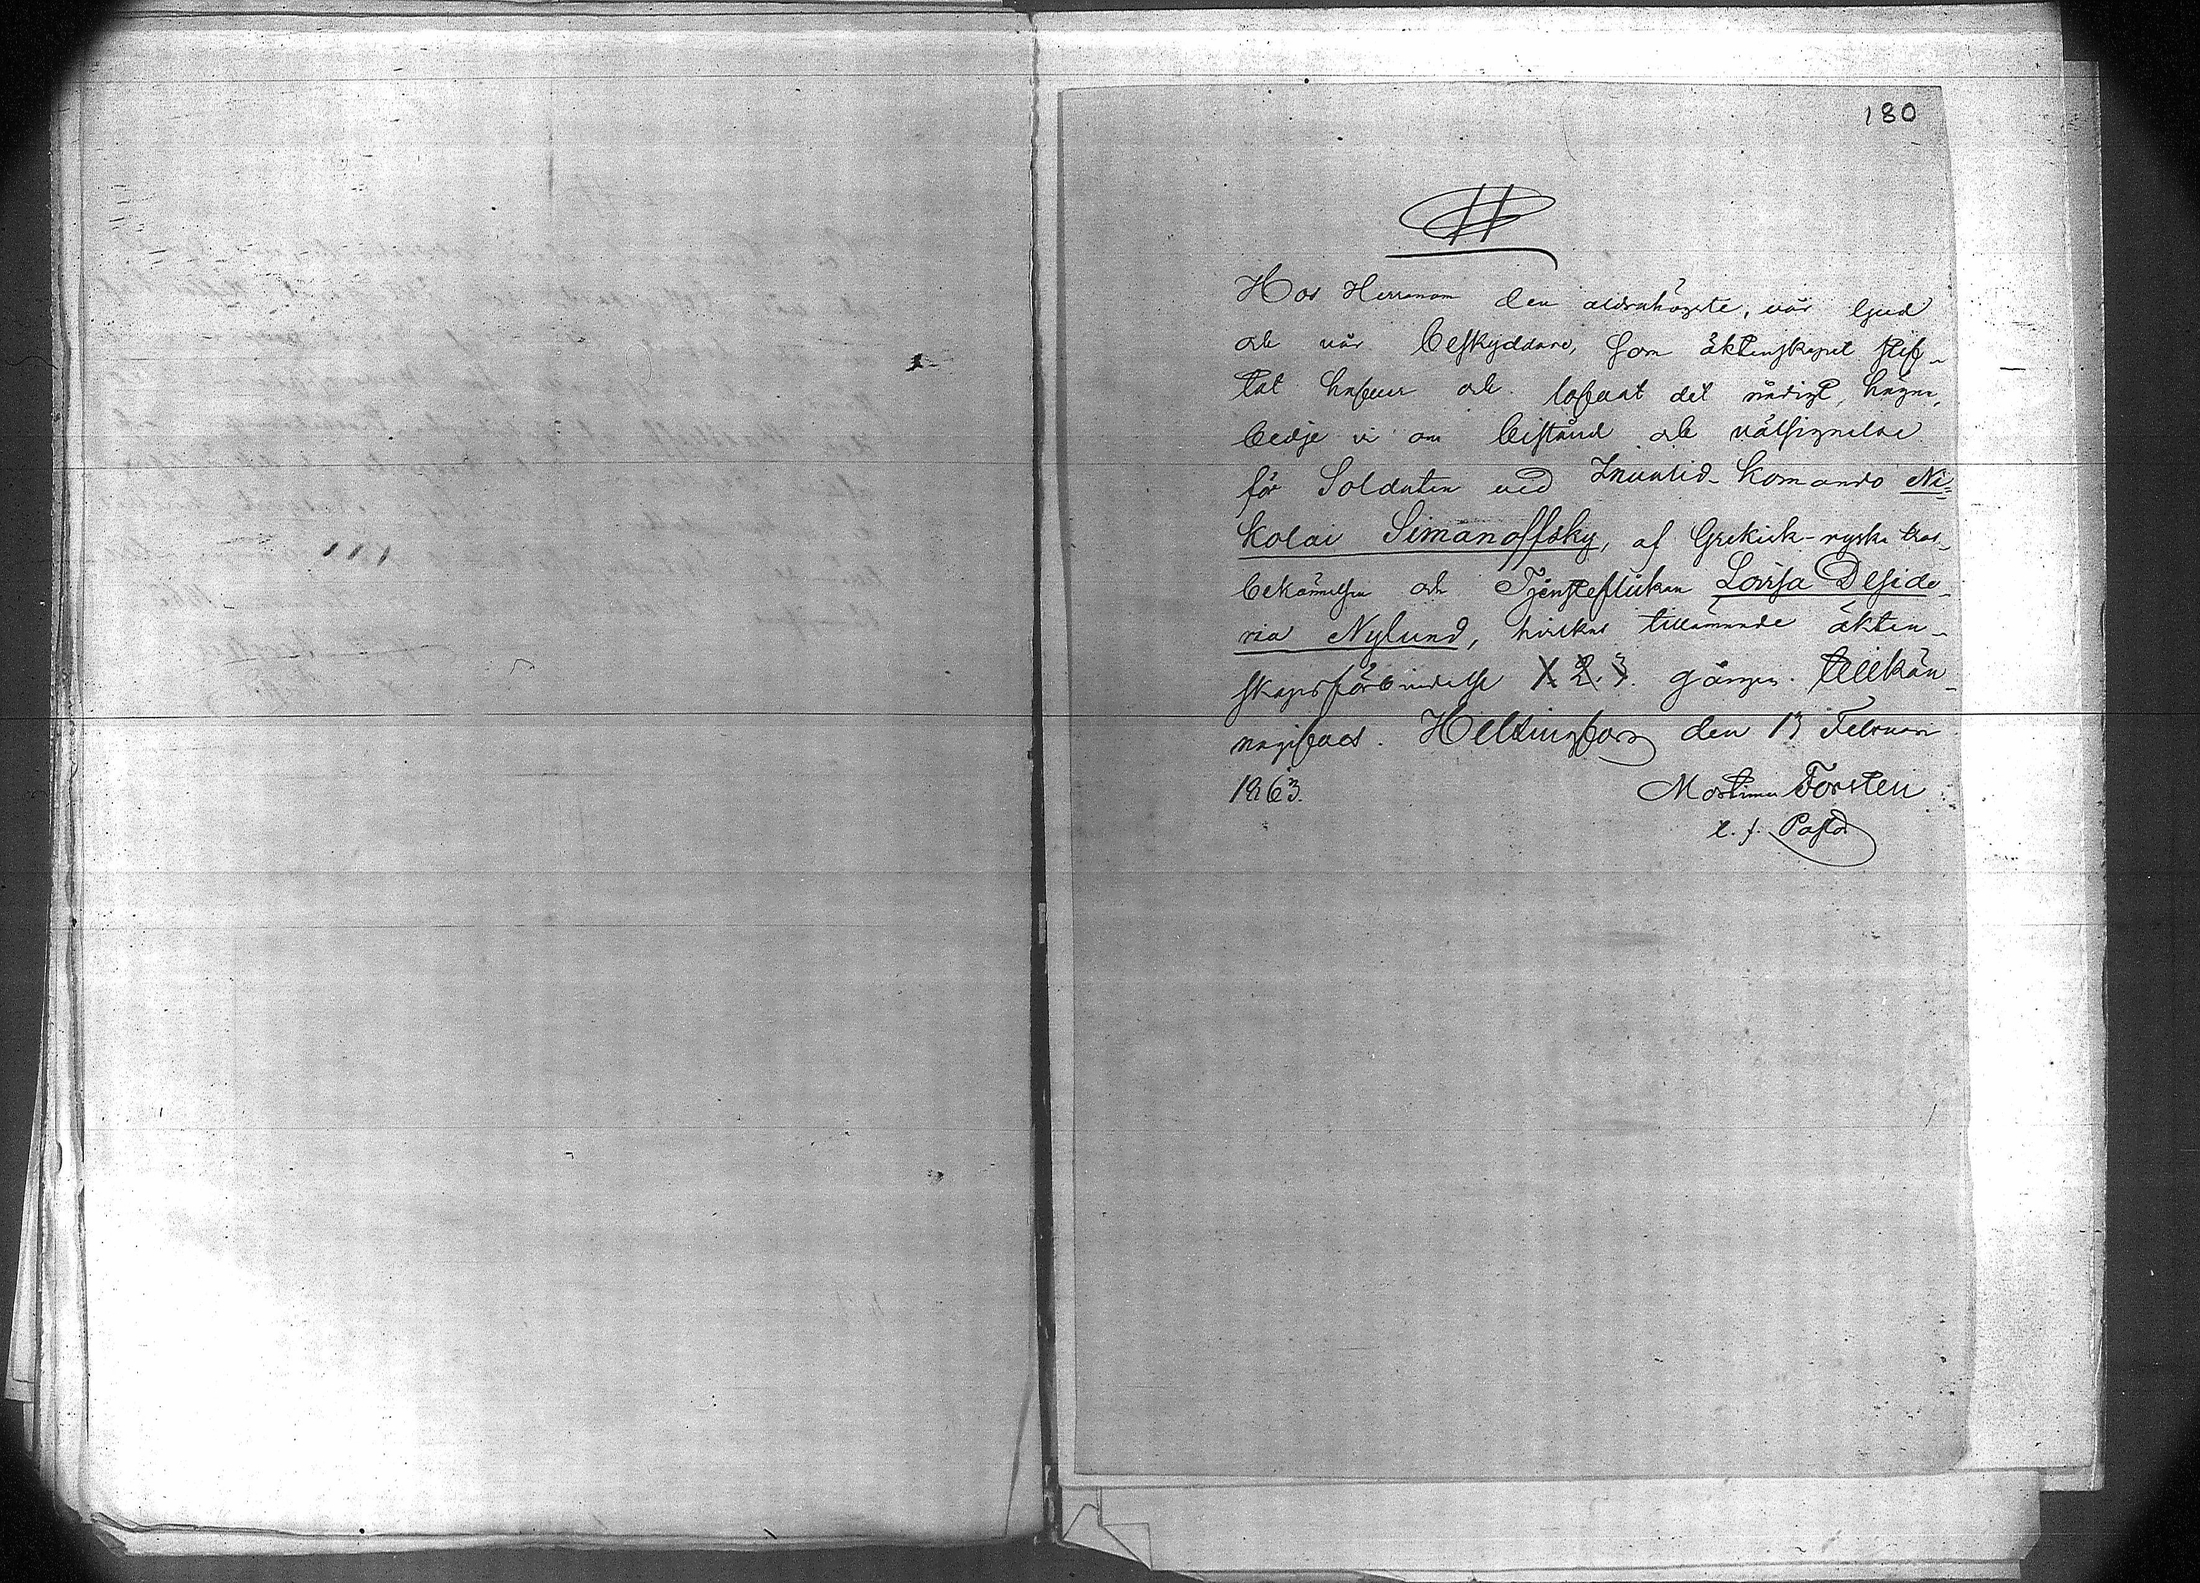 180
Hos Herranom den aldrahögste, vår ljus
och vår beskyddare, som äktenskapet stif-
tat hafver och lofvat det nådigt hägna,
bedje vi om bistånd och välsignelse
för Soldaten vid Invalid-Komando Ni-
kolai Simanoffsky, af Grekisk-ryska tros-
bekännelsen och Tjensteflickan Lovisa Deside-
ria Nylund, hvilkas tillämnade äkten-
skapsförbindelse 1. 2. 3. gången tillkän-
nagifves. Helsingfors den 13 Februari
1863. Forstén
t. f. Pastor